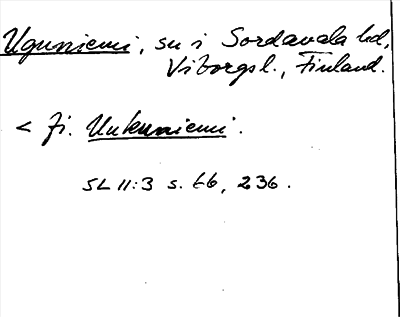 Uguniemi, sn i Sordavala hd,
Viborgs l., Finland.
< fi. Uukuniemi.
SL 11:3 s. 66, 236.